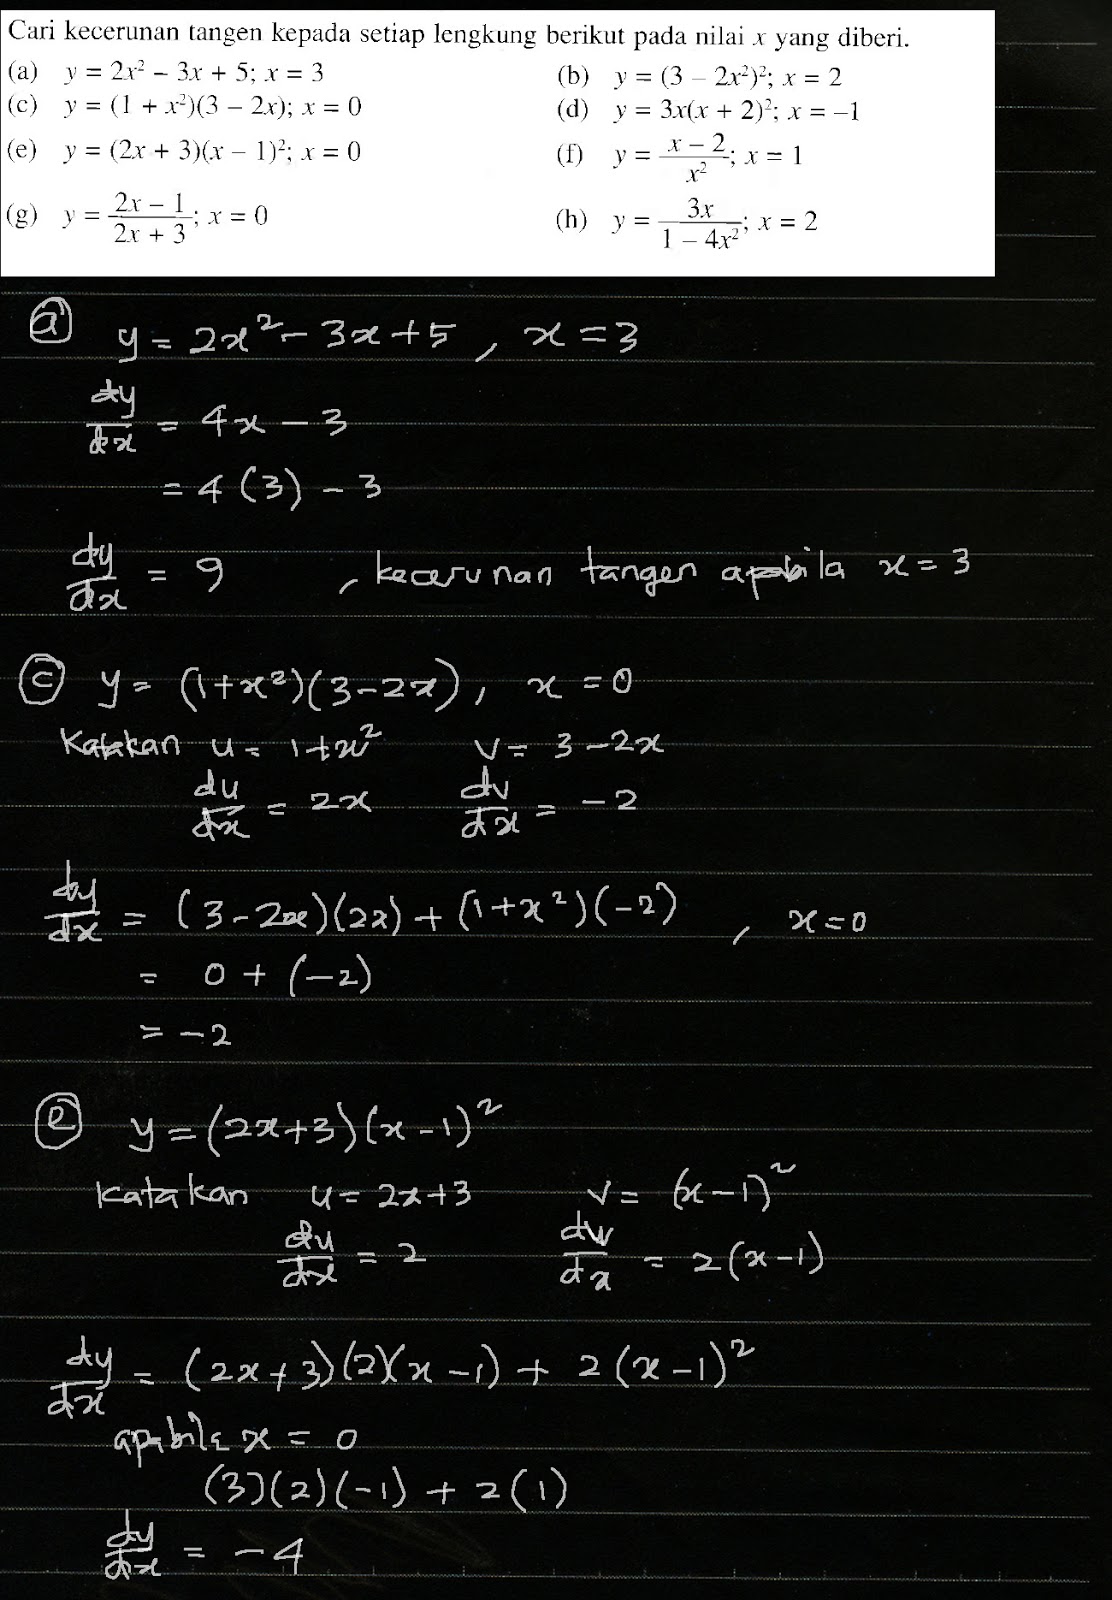 Cari kecerunan tangen kepada setiap lengkung berikut pada nilai x yang diberi.
(a) y = 2x² – 3x + 5; x = 3
(b) y = (3 – 2x²)²; x = 2
(c) y = (1 + x²)(3 – 2x); x = 0
(d) y = 3x(x + 2)²; x = –1
(e) y = (2x + 3)(x – 1)²; x = 0
(f) y = (x – 2)/x²; x = 1
(g) y = (2x – 1)/(2x + 3); x = 0
(h) y = 3x/(1 – 4x²); x = 2
(a) y = 2x² – 3x + 5 , x = 3
dy/dx = 4x – 3
= 4(3) – 3
dy/dx = 9 , kecerunan tangen apabila x = 3
(c) y = (1+x²)(3–2x), x = 0
Katakan u = 1+x² v = 3–2x
du/dx = 2x dv/dx = –2
dy/dx = (3–2x)(2x) + (1+x²)(–2) , x=0
= 0 + (–2)
= –2
(e) y = (2x+3)(x–1)²
Katakan u = 2x+3 v = (x–1)²
du/dx = 2 dv/dx = 2(x–1)
dy/dx = (2x+3)(2)(x–1) + 2(x–1)²
apabila x = 0
(3)(2)(–1) + 2(1)
dy/dx = –4